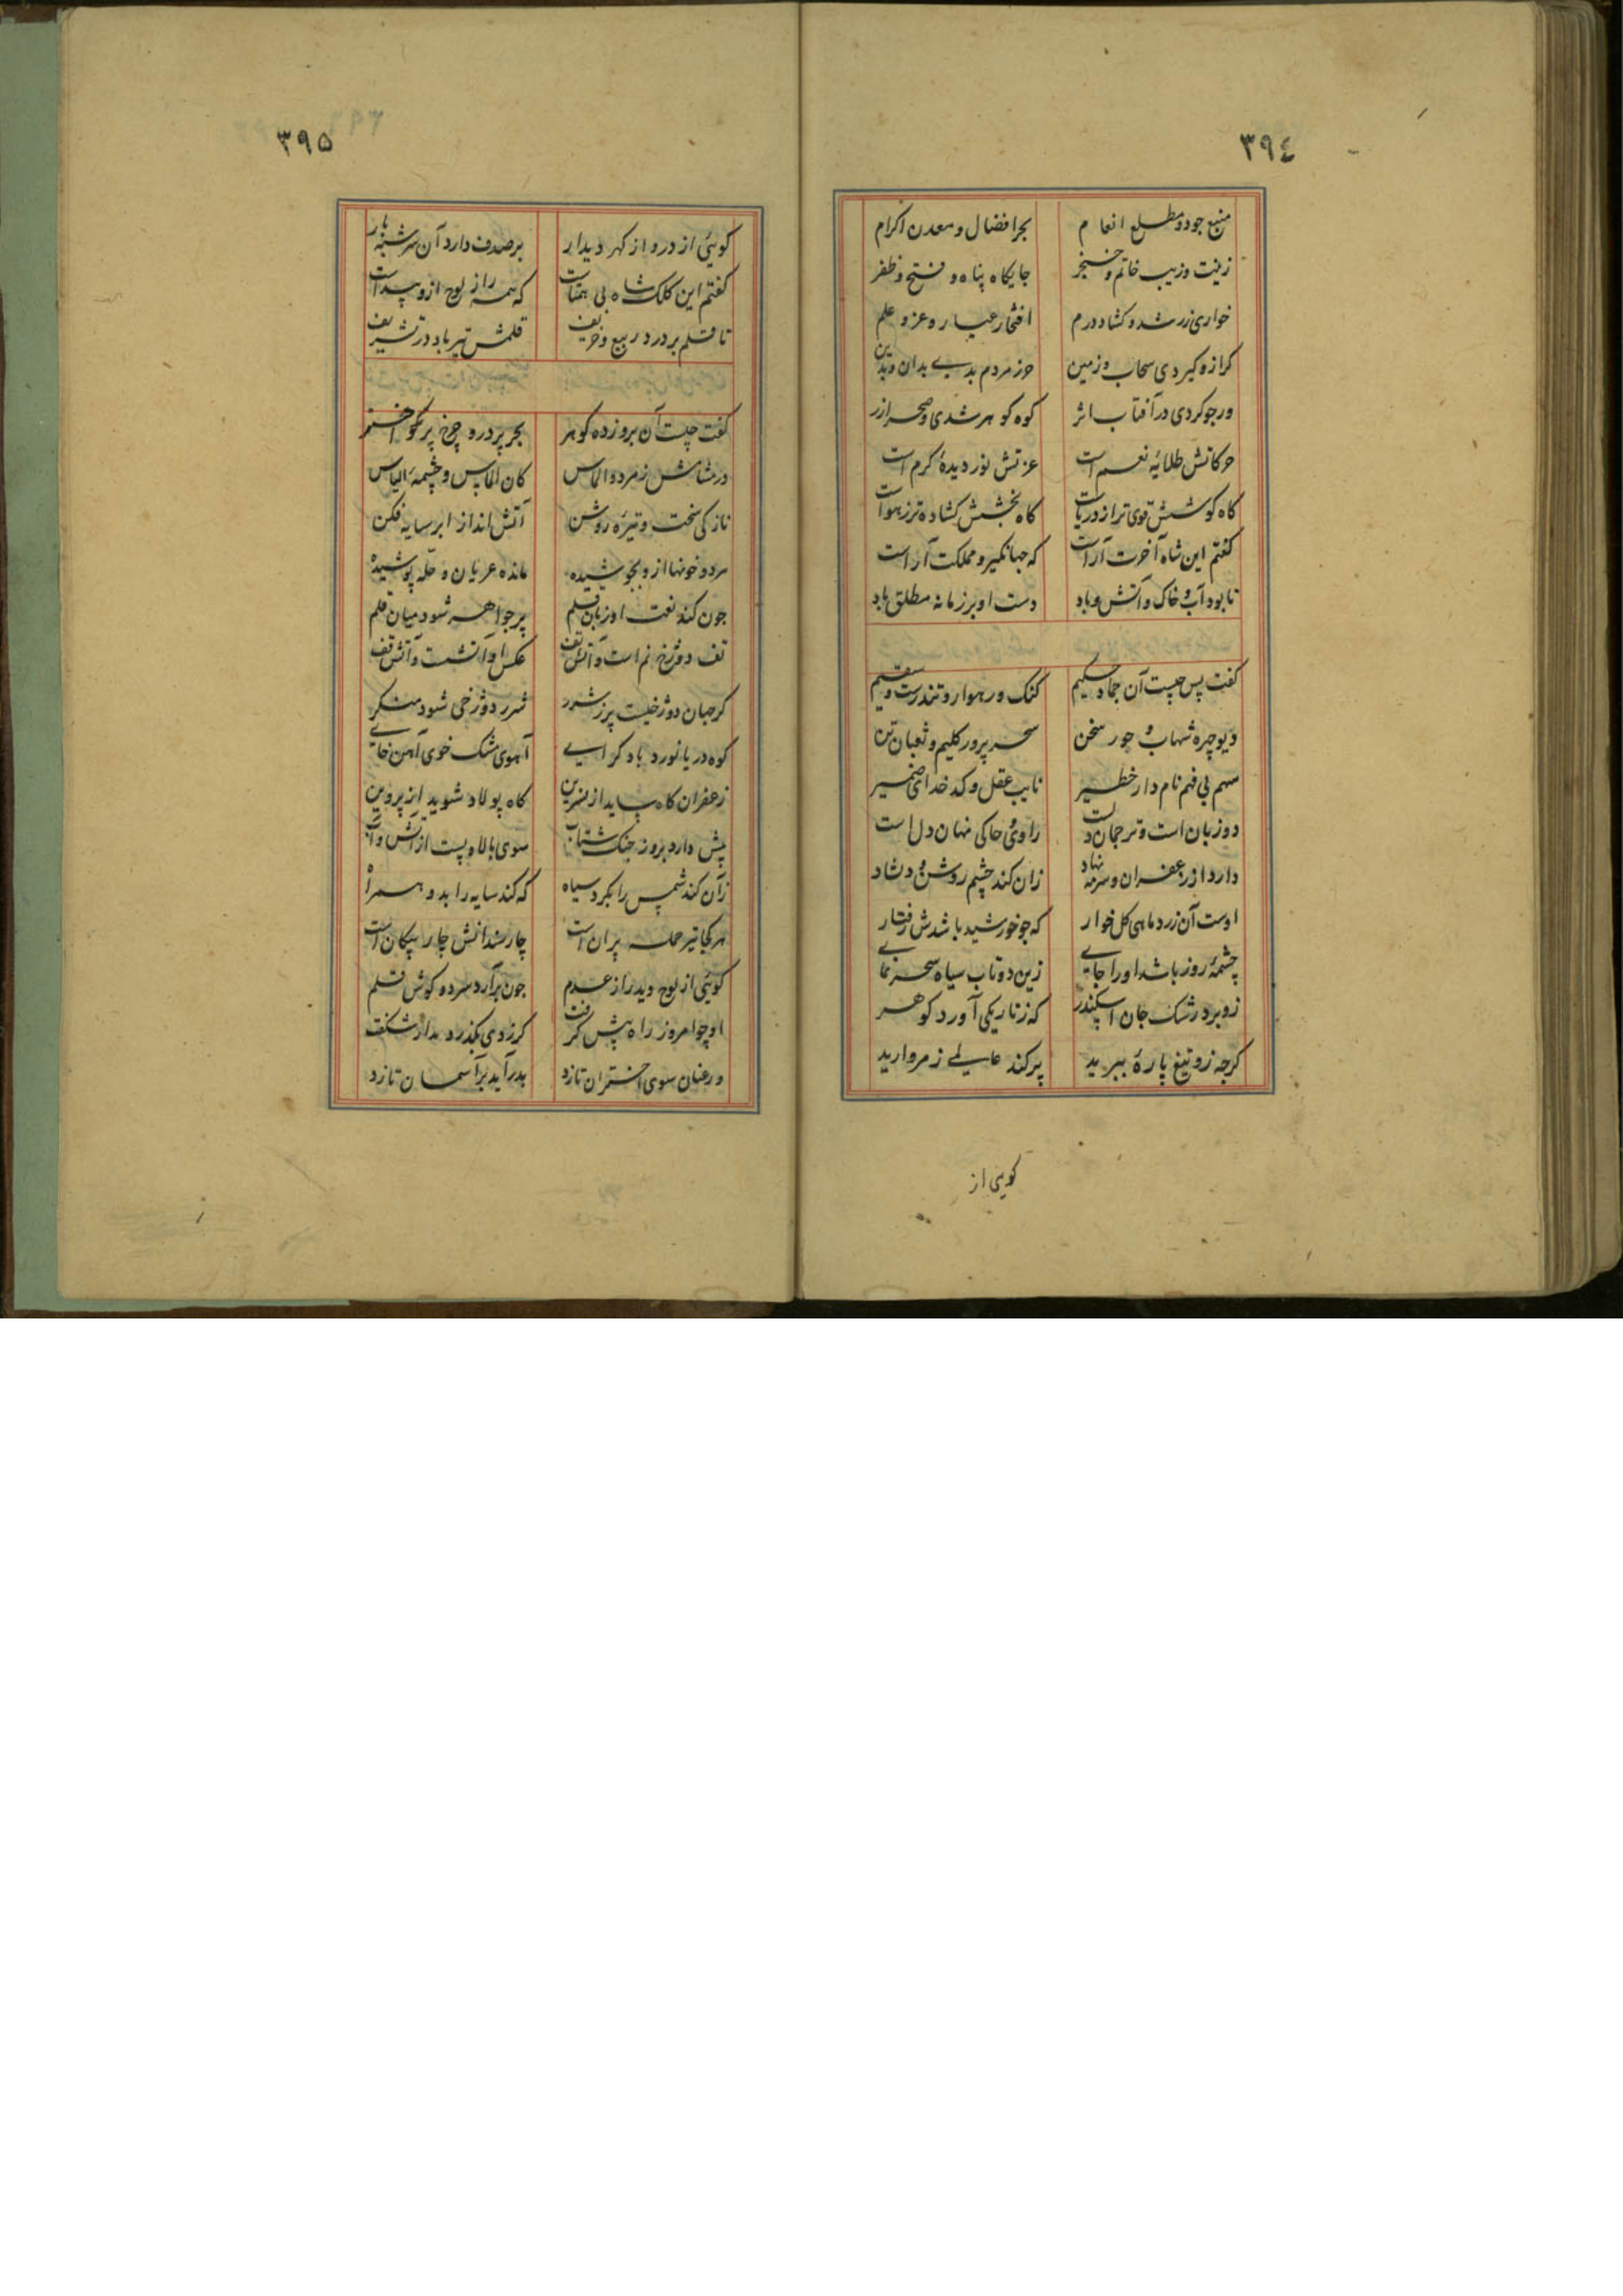 ٣٩٤
منبع جود و مطلع انعام بحر افضال و معدن اکرام
زینت و زیب خاتم و خنجر جایکاه پناه و فتح و ظفر
خواری زر شد و کشاد درم افتخار عیار و عز و علم
کر ازو کیردی سحاب و زمین جز مردم بدی بدان و بدین
ور جو کردی در آفتاب اثر کوه کوهر شدی و صحرا زر
حرکاتش طلایهٔ نعم است عزتش نور دیدهٔ کرم است
کاه کوشش قوی تر از دریاست کاه بخشش کشاده تر ز هواست
کفتم این شاه آخرت آراست که جهانکیر و مملکت آراست
تا بود آب و خاک و آتش و باد دست او بر زمانه مطلق باد
کفت پس چیست آن جماد حکیم کنک و رهوار و تندرست و سقیم
دیو چهره شهاب و حور سخن سحر پرور کلیم و ثعبان تن
سهم بی فهم نام دار خطیر نایب عقل و کدخدای ضمیر
دو زبان است و ترجمان دلست راوی حاکی نهان دل است
دارد از زعفران و سرمه نهاد زان کند چشم روشن و دلشاد
اوست آن زرد ماهی کل خوار که جو خورشید باشدش رفتار
چشمهٔ روز باشد او را جای زین دو تاب سیاه سحر نمای
زو برد رشک جان اسکندر که ز تاریکی آورد کوهر
کرچه زو تیغ پارهٔ ببرید پر کند عالمی ز مروارید
کویی از
٣٩۵
کوئی از درو از کهر دیدار بر صدف دارد آن سرشته بار
کفتم این کلک شاه بی همتاست که همه راز لوح ازو پیداست
تا قلم بر درد ربیع و خریف قلمش تیر باد در تشریف
کفت چیست آن بروزده کوهر بحر پر در و چرخ پر اختر
در مشامش زمرد و الماس کان الماس و چشمهٔ الیاس
نازکی سخت و تیرهٔ روشن آتش انداز ابر سایه فکن
مرد و خونها ازو بجوشیده مانده عریان و حلّه پوشیده
جون کند نعت او زبان قلم پر جواهر شود میان قلم
تف دوزخ نم است و آتش تف عکس او آتشست و آتش قف
کر جهان دوزخیست پر ز شرر شرر دوزخی شود منکر
کوه دریا نورد باد کرای آهوی مشک خوی آهن خای
زعفران کاه ساید از نسرین کاه پولاد شوید از پروین
پیش دارد بروز جنک شتاب سوی بالا و پست از آتش و آب
زان کند شمس را بکرد سیاه که کند سایه را بدو همراه
هر کجا تیر حمله پران است چار سندانش چار پیکان است
کوئی از لوح دید راز عدم جون برآرد سر دو کوش قلم
او چو امروز راه پیش کرفت کر ز دی بکذرد مدار شکفت
ور عنان سوی اختران تازد بدر آید بر آسمان تازد